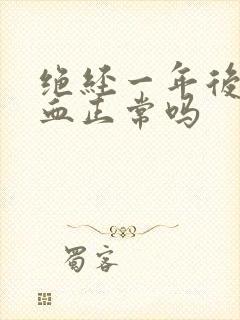 绝经一年後
血正常吗
蜀客